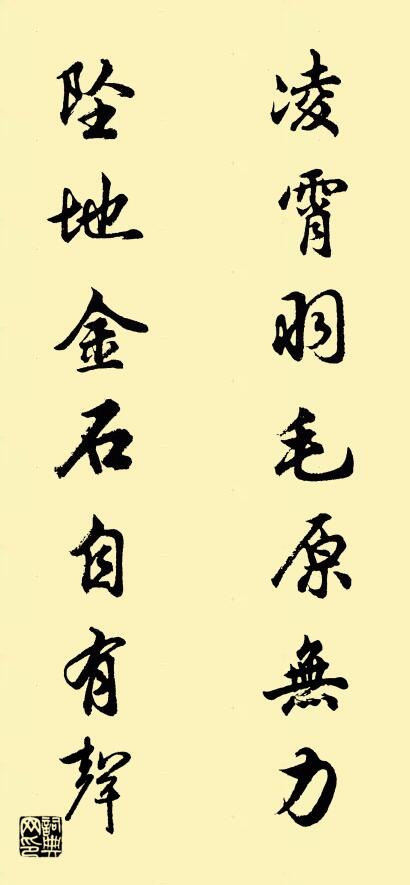 凌霄羽毛原無力
坠地金石自有聲
詞典网印